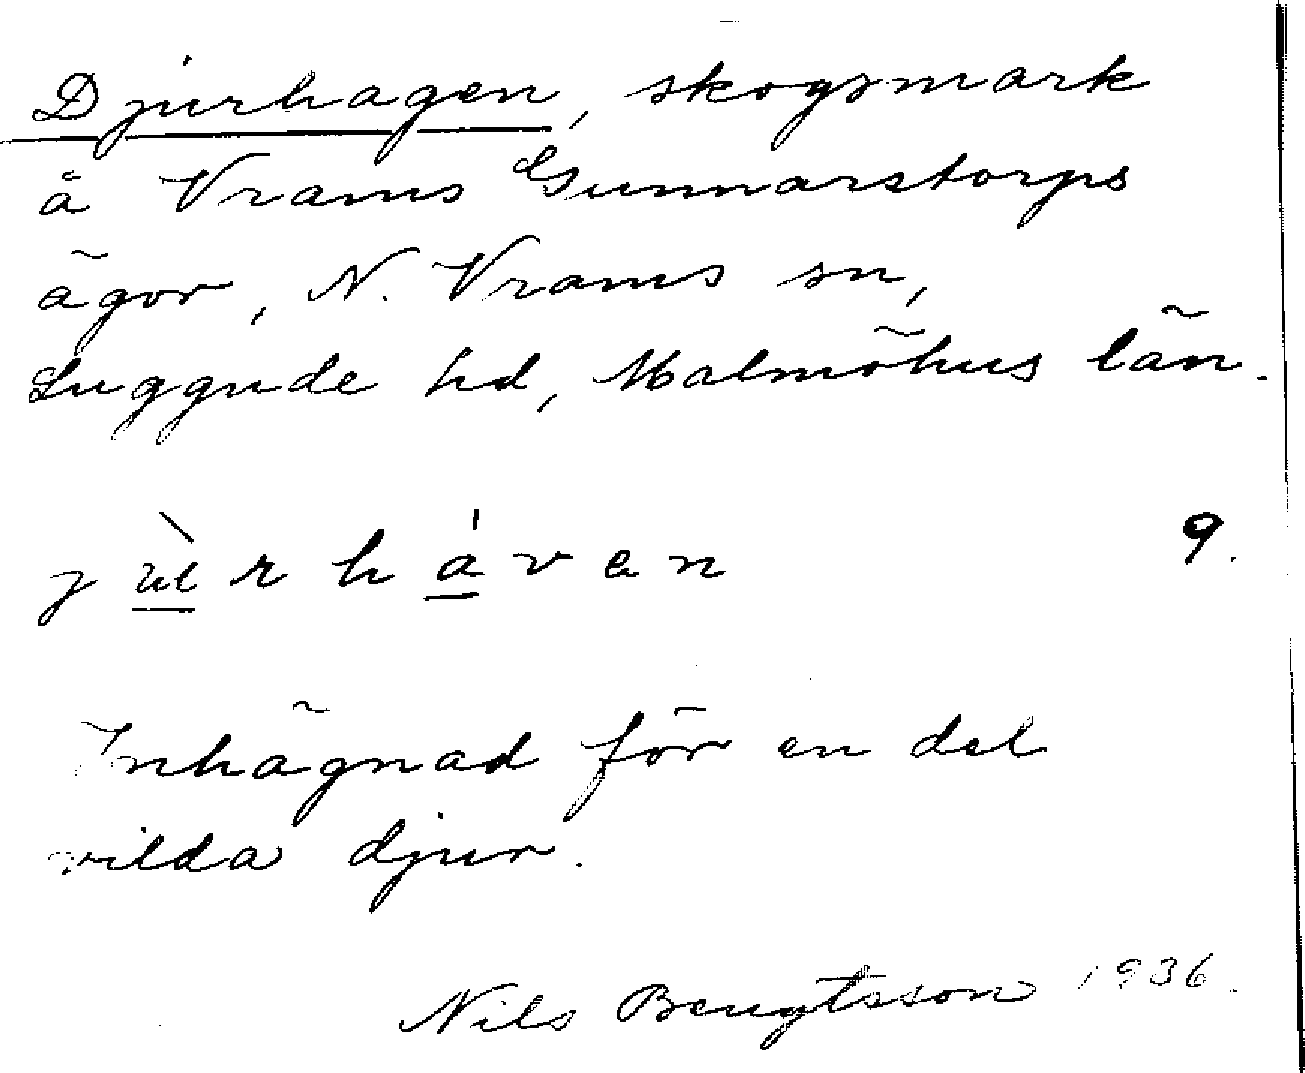 Djurhagen, skogsmark
å Vrams Gunnarstorps
ägor, N. Vrams sn,
Luggude hd, Malmöhus län.
j ù r h á v e n 9.
Inhägnad för en del
vilda djur.
Nils Bengtsson 1936.